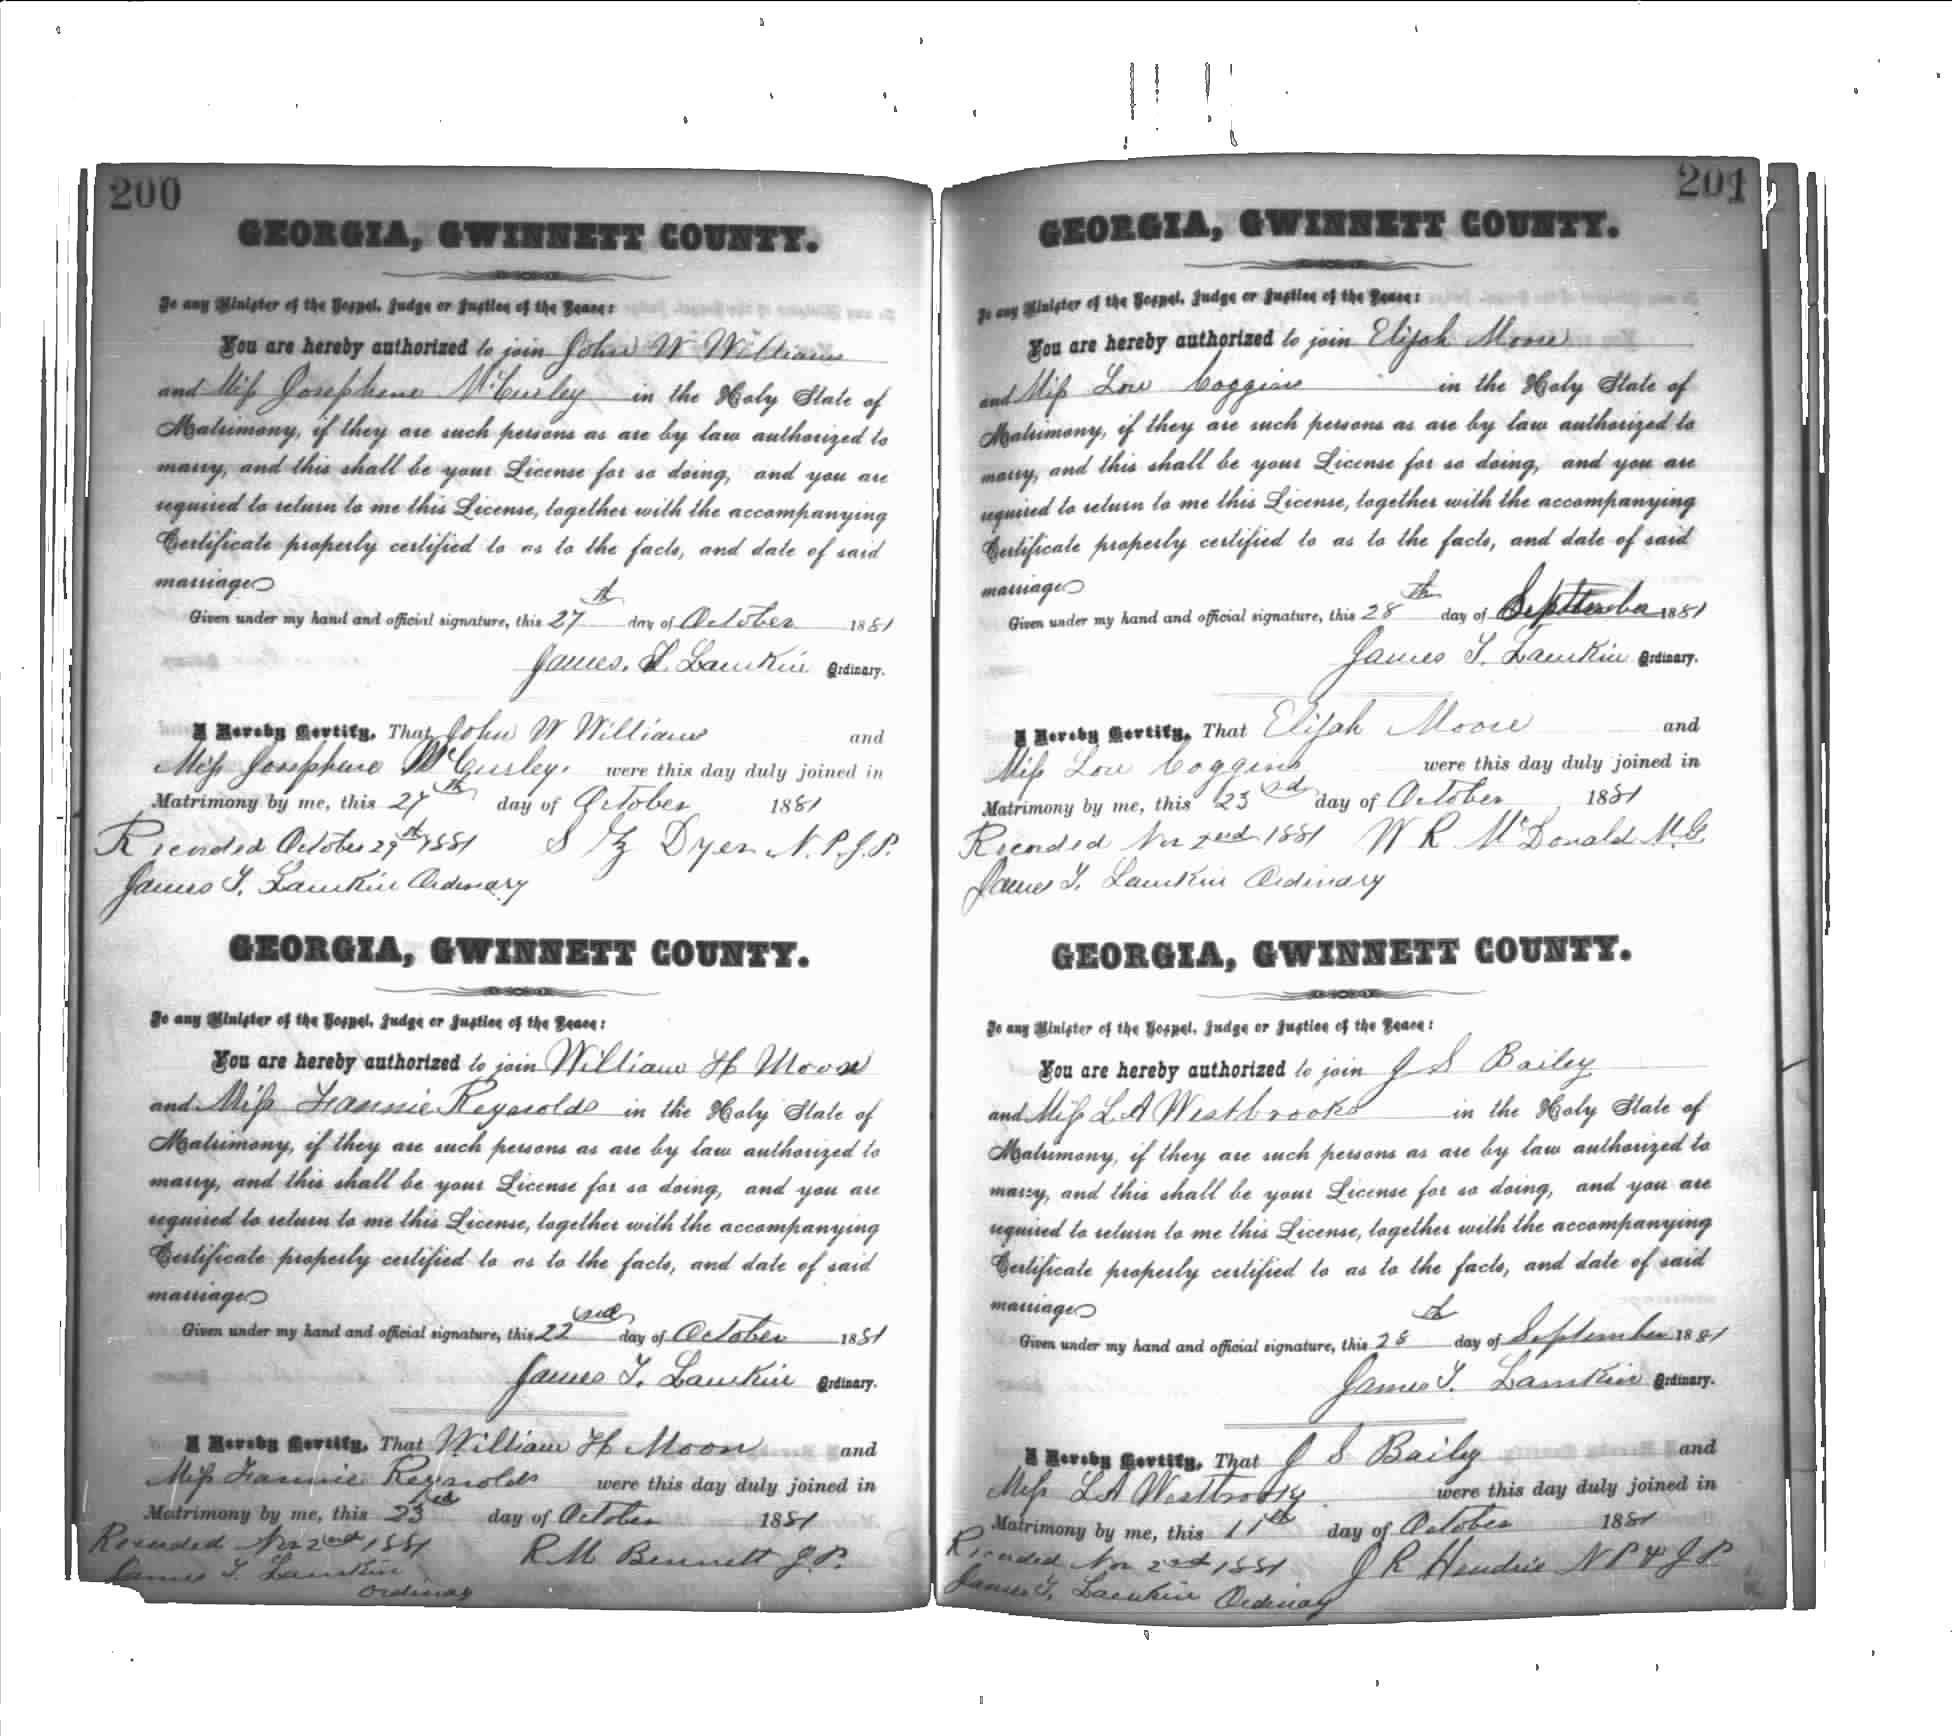 200
GEORGIA, GWINNETT COUNTY.
To any Minister of the Gospel, Judge or Justice of the Peace:
You are hereby authorized to join John W Williams
and Miss Josephene McCurley in the Holy State of
Matrimony, if they are such persons as are by law authorized to
marry, and this shall be your License for so doing, and you are
required to return to me this License, together with the accompanying
Certificate properly certified to as to the facts, and date of said
marriage
Given under my hand and official signature, this 27th day of October 1881
James. T. Lamkin Ordinary.
I Hereby Certify, That John W Williams and
Miss Josephene McCurley. were this day duly joined in
Matrimony by me, this 27th day of October 1881
Recorded October 29th 1881 S Dyer N. P. J. P.
James T. Lamkin Ordinary
GEORGIA, GWINNETT COUNTY.
To any Minister of the Gospel, Judge or Justice of the Peace:
You are hereby authorized to join William H Moon
and Miss Fannie Reynolds in the Holy State of
Matrimony, if they are such persons as are by law authorized to
marry, and this shall be your License for so doing, and you are
required to return to me this License, together with the accompanying
Certificate properly certified to as to the facts, and date of said
marriage
Given under my hand and official signature, this 22nd day of October 1881
James T. Lamkin Ordinary.
I Hereby Certify, That William H Moon and
Miss Fannie Reynolds were this day duly joined in
Matrimony by me, this 23rd day of October 1881
Recorded Nov 2nd 1881 R M Bennett J. P.
James T. Lamkin
Ordinary
201
GEORGIA, GWINNETT COUNTY.
To any Minister of the Gospel, Judge or Justice of the Peace:
You are hereby authorized to join Elijah Moore
and Miss Lou Coggins in the Holy State of
Matrimony, if they are such persons as are by law authorized to
marry, and this shall be your License for so doing, and you are
required to return to me this License, together with the accompanying
Certificate properly certified to as to the facts, and date of said
marriage
Given under my hand and official signature, this 28th day of September 1881
James T. Lamkin Ordinary.
I Hereby Certify, That Elijah Moore and
Miss Lou Coggins were this day duly joined in
Matrimony by me, this 23rd day of October 1881
Recorded Nov 2nd 1881 W R McDonald M. G.
James T. Lamkin Ordinary
GEORGIA, GWINNETT COUNTY.
To any Minister of the Gospel, Judge or Justice of the Peace:
You are hereby authorized to join J S Bailey
and Miss L A Westbrooks in the Holy State of
Matrimony, if they are such persons as are by law authorized to
marry, and this shall be your License for so doing, and you are
required to return to me this License, together with the accompanying
Certificate properly certified to as to the facts, and date of said
marriage
Given under my hand and official signature, this 28th day of September 1881
James T. Lamkin Ordinary.
I Hereby Certify, That J S Baily and
Miss L A Westbrooks were this day duly joined in
Matrimony by me, this 11th day of October 1881
Recorded Nov 22nd 1881 J R Hendrix N P & J P
James T. Lamkin Ordinary